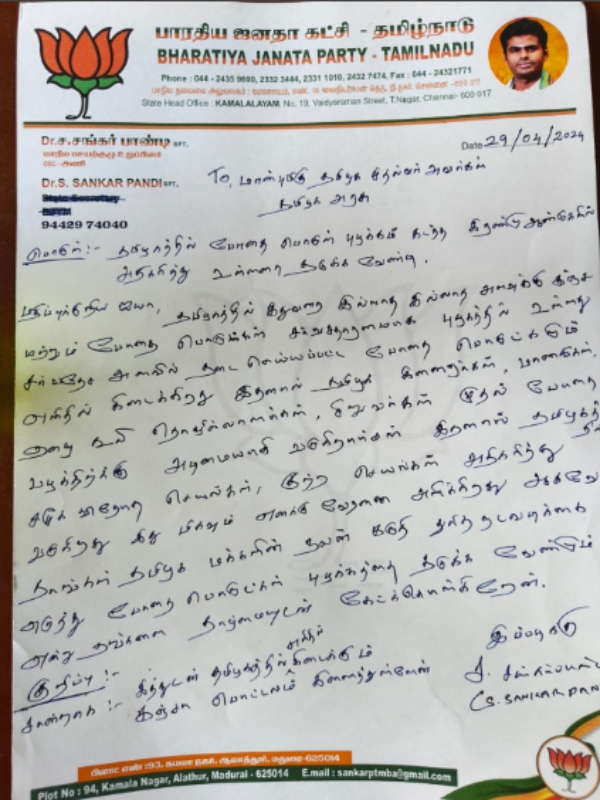 பாரதிய ஜனதா கட்சி - தமிழ்நாடு
BHARATIYA JANATA PARTY - TAMILNADU
Phone : 044 - 2435 9600, 2332 3444, 2331 1010, 2432 7474, Fax : 044 - 24321771
State Head Office : KAMALALAYAM, No. 19, Vaidyaraman Street, T.Nagar, Chennai- 600 017
Dr.ச.சங்கர் பாண்டி BPT.
மாநில செயற்குழு உறுப்பினர்
OBC -அணி
Date 29/04/2024
Dr.S. SANKAR PANDI BPT.
State Secretary
94429 74040
To, மாண்புமிகு தமிழக முதல்வர் அவர்கள்
தமிழக அரசு
பொருள் :- தமிழகத்தில் போதை பொருள் புழக்கம் கடந்த இரண்டு ஆண்டுகளில்
அதிகரித்து உள்ளதை தடுக்க வேண்டி.
மதிப்பிற்குரிய ஐயா, தமிழகத்தில் இதுவரை இல்லாத இல்லாத அளவுக்கு கஞ்சா
மற்றும் போதை பொருட்கள் சர்வசாதாரணமாக புழக்கத்தில் உள்ளது
சர்வதேச அளவில் தடை செய்யப்பட்ட போதை பொருட்களும்
எளிதில் கிடைக்கிறது இதனால் தமிழக இளைஞர்கள், மாணவர்கள்,
கூலி தொழிலாளர்கள், சிறுவர்கள் முதல் போதை
பழக்கத்திற்கு அடிமையாகி வருகிறார்கள் இதனால் தமிழகத்தில்
சமூக விரோத செயல்கள், குற்ற செயல்கள் அதிகரித்து
வருகிறது இது மிகவும் எனக்கு வேதனை அளிக்கிறது ஆகவே
தாங்கள் தமிழக மக்களின் நலன் கருதி துரித நடவடிக்கை
எடுத்து போதை பொருட்கள் புழக்கத்தை தடுக்க வேண்டும்
என்று தங்களை தாழ்மையுடன் கேட்டுக்கொள்கிறேன்.
இப்படிக்கு
குறிப்பு :- இத்துடன் தமிழகத்தில் எளிதில் கிடைக்கும்
சான்றாக :- கஞ்சா பொட்டலம் இணைத்துள்ளேன்
(S. SANKAR PANDI
பிளாட் எண் :93, கமலா நகர், ஆலாத்தூர், மதுரை-625014
Plot No : 94, Kamala Nagar, Alathur, Madurai - 625014 E.mail : sankarptmba@gmail.com